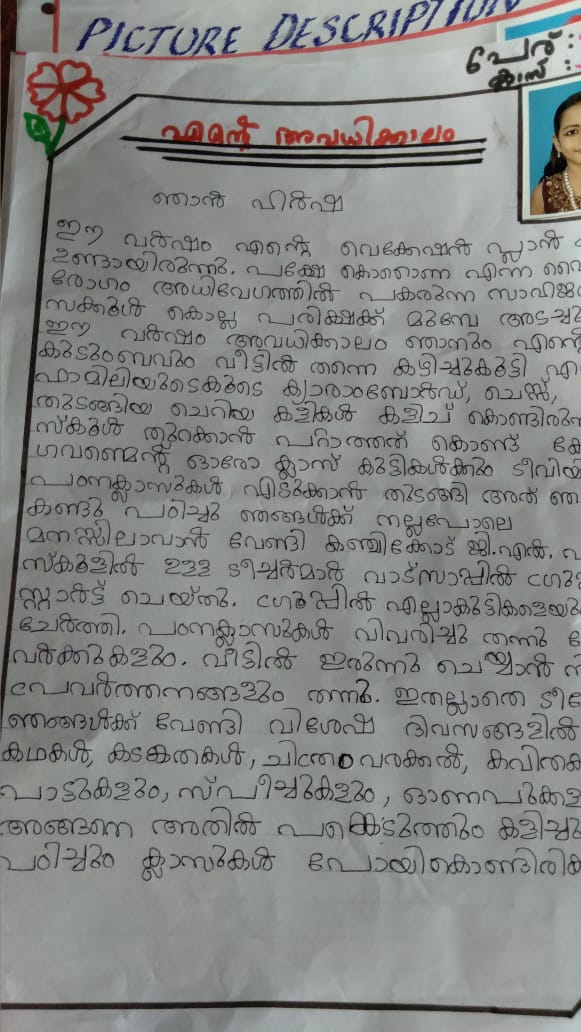 PICTURE DESCRIPTION
പേര് :
ക്ലാസ് :
എന്റെ അവധിക്കാലം
ഞാൻ ഹർഷ
ഈ വർഷം എന്റെ വെക്കേഷൻ പ്ലാൻ
ഉണ്ടായിരുന്നു. പക്ഷേ കൊറോണ എന്ന വൈ
രോഗം അധിവേഗത്തിൽ പകരുന്ന സാഹിജ
സക്കൂൾ കൊല്ല പരിക്ഷക്ക് മുമ്പേ അടച്ചു
ഈ വർഷം അവധിക്കാലം ഞാനും എന്റ
കുടുംബവും വീട്ടിൽ തന്നെ കഴിച്ചുകൂട്ടി എ
ഫാമിലിയുടെകൂടെ ക്യാരംബോർഡ്, ചെസ്സ്,
തുടങ്ങിയ ചെറിയ കളികൾ കളിച് കൊണ്ടിരുന
സ്കൂൾ തുറക്കാൻ പറ്റാത്തത് കൊണ്ട് കേ
ഗവണ്മെന്റ് ഓരോ ക്ലാസ് കുട്ടികൾക്കും ടീവിയ
പഠനക്ലാസുകൾ എടുക്കാൻ തുടങ്ങി അത് ഞ
കണ്ടു പഠിച്ചു ഞങ്ങൾക്ക് നല്ലപോലെ
മനസ്സിലാവാൻ വേണ്ടി കഞ്ചിക്കോട് ജി.എൻ.
സ്കൂളിൽ ഉള്ള ടീച്ചർമാർ വാട്സാപ്പിൽ ഗ്രൂ
സ്റ്റാർട്ട് ചെയ്തു. ഗ്രൂപ്പിൽ എല്ലാകുട്ടികളെയും
ചേർത്തി. പഠനക്ലാസുകൾ വിവരിച്ചു തന്നു
വർക്കുകളും. വീട്ടിൽ ഇരുന്നു ചെയ്യാൻ
പ്രേവർത്തനങ്ങളും തന്നു. ഇതല്ലാതെ ടീ
ഞങ്ങൾക്ക് വേണ്ടി വിശേഷ ദിവസങ്ങളിൽ
കഥകൾ, കടങ്കതകൾ, ചിത്രം വരക്കൽ, കവിത
പാട്ടുകളും, സ്പീച്ചുകളും, ഓണപൂക്കള
അങ്ങനെ അതിൽ പങ്കെടുത്തും കളിച്ചു
പഠിച്ചും ക്ലാസുകൾ പോയികൊണ്ടിരിക